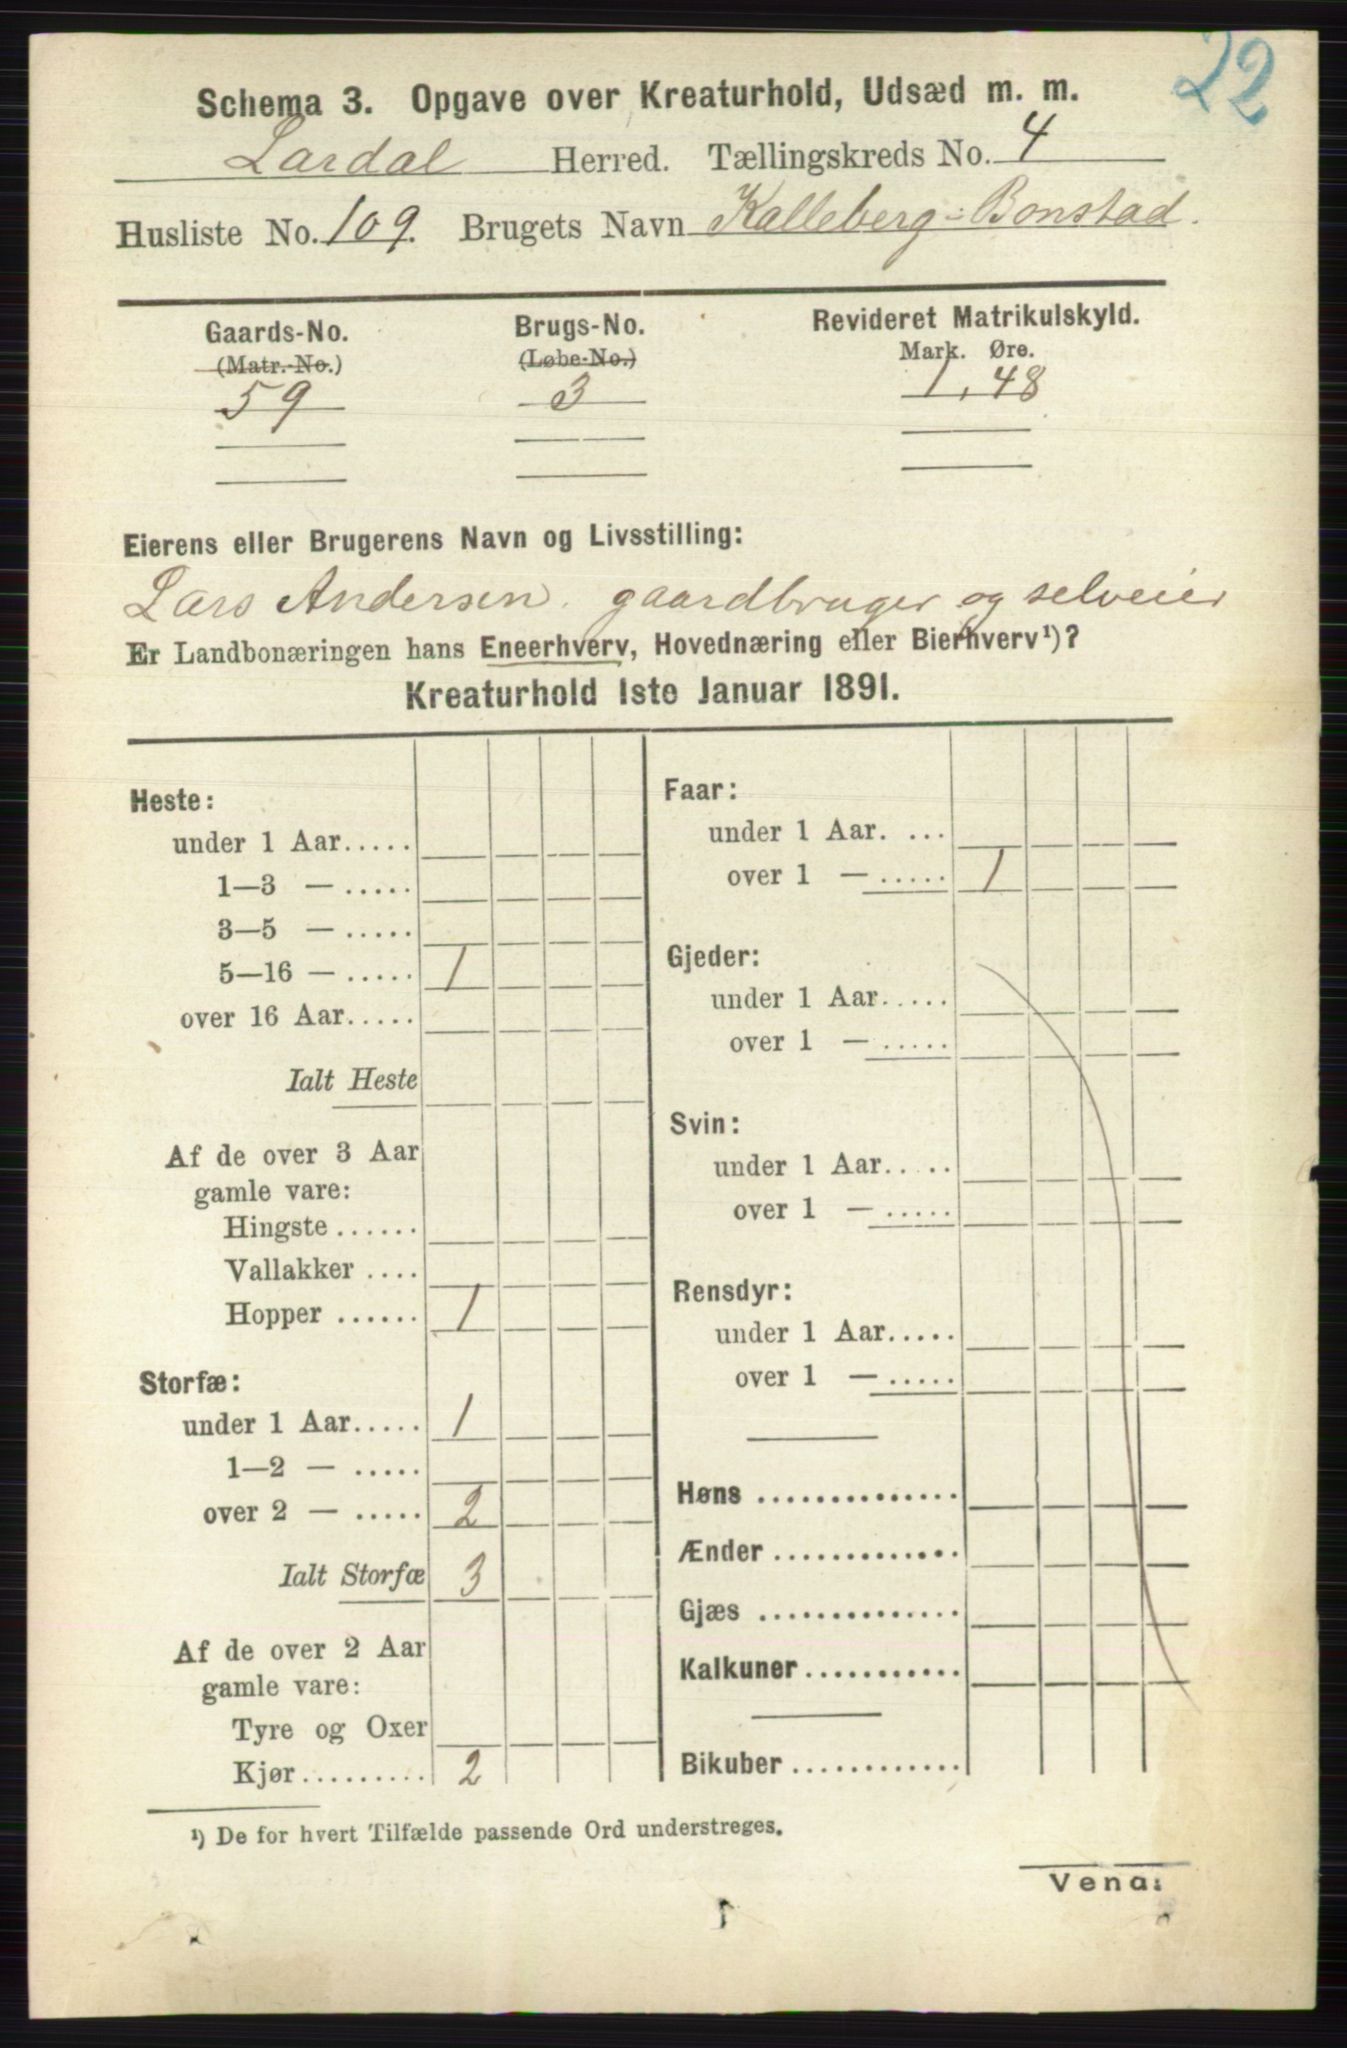 22
Schema 3. Opgave over Kreaturhold, Udsæd m. m.
Lardal Herred. Tællingskreds No. 4
Husliste No. 109. Brugets Navn Kalleberg-Bonstad.
Gaards-No. Brugs-No. Revideret Matrikulskyld.
(Matr.-No.) (Løbe-No.) Mark. Øre.
59 3 1,48
Eierens eller Brugerens Navn og Livsstilling:
Lars Andersen. gaardbruger og selveier
Er Landbonæringen hans Eneerhverv, Hovednæring eller Bierhverv¹)?
Kreaturhold 1ste Januar 1891.
Heste:
under 1 Aar.....
1—3 — .....
3—5 — .....
5—16 — ..... 1
over 16 Aar.....
Ialt Heste
Af de over 3 Aar
gamle vare:
Hingste ......
Vallakker ....
Hopper ...... 1
Storfæ:
under 1 Aar..... 1
1—2 — .....
over 2 — ..... 2
Ialt Storfæ 3
Af de over 2 Aar
gamle vare:
Tyre og Oxer
Kjør......... 2
Faar:
under 1 Aar. ...
over 1 — ..... 1
Gjeder:
under 1 Aar.....
over 1 — .....
Svin:
under 1 Aar.....
over 1 — .....
Rensdyr:
under 1 Aar.....
over 1 — .....
Høns ..............
Ænder .............
Gjæs ..............
Kalkuner...........
Bikuber ............
¹) De for hvert Tilfælde passende Ord understreges.
Vend!